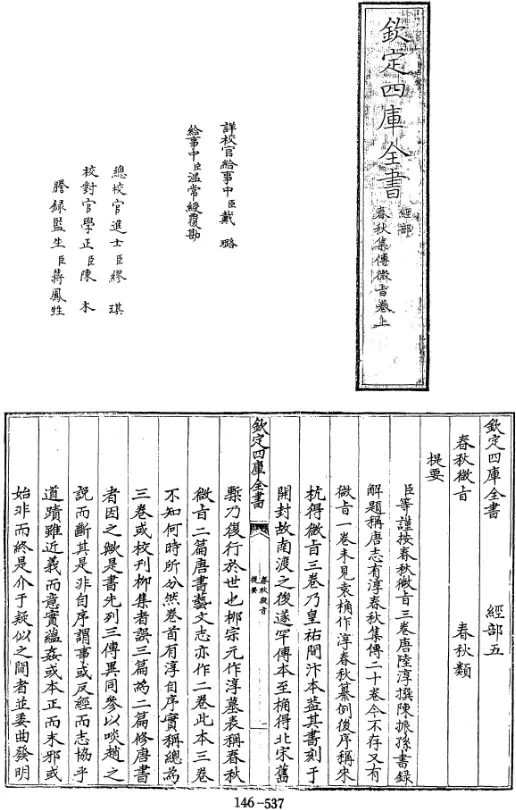 欽定四庫全書
經部
春秋集傳微旨卷上
詳校官給事中臣戴璐
給事中臣溫常綬覆勘
總校官進士臣繆琪
校對官學正臣陳木
謄錄監生臣蔣鳳牲
欽定四庫全書 經部五
春秋微旨 春秋類
提要
臣等謹按春秋微旨三卷唐陸淳撰陳振孫書録
解題稱唐志有淳春秋集傳二十卷今不存又有
微旨一卷未見袁桷作淳春秋纂例後序稱來
杭得微旨三卷乃皇祐間汴本蓋其書刻于
開封故南渡之後遂罕傳本至桷得北宋舊
欽定四庫全書
春秋微旨
提要
槧乃復行於世也柳宗元作淳墓表稱春秋
微旨二篇唐書藝文志亦作二卷此本三卷
不知何時所分然卷首有淳自序實稱總為
三卷或校刊柳集者誤三篇為二篇修唐書
者因之歟是書先列三傳異同參以啖趙之
說而斷其是非自序謂事或反經而志協乎
道蹟雖近義而意實蘊姦或本正而末邪或
始非而終是介于疑似之間者並委曲發明
146-537